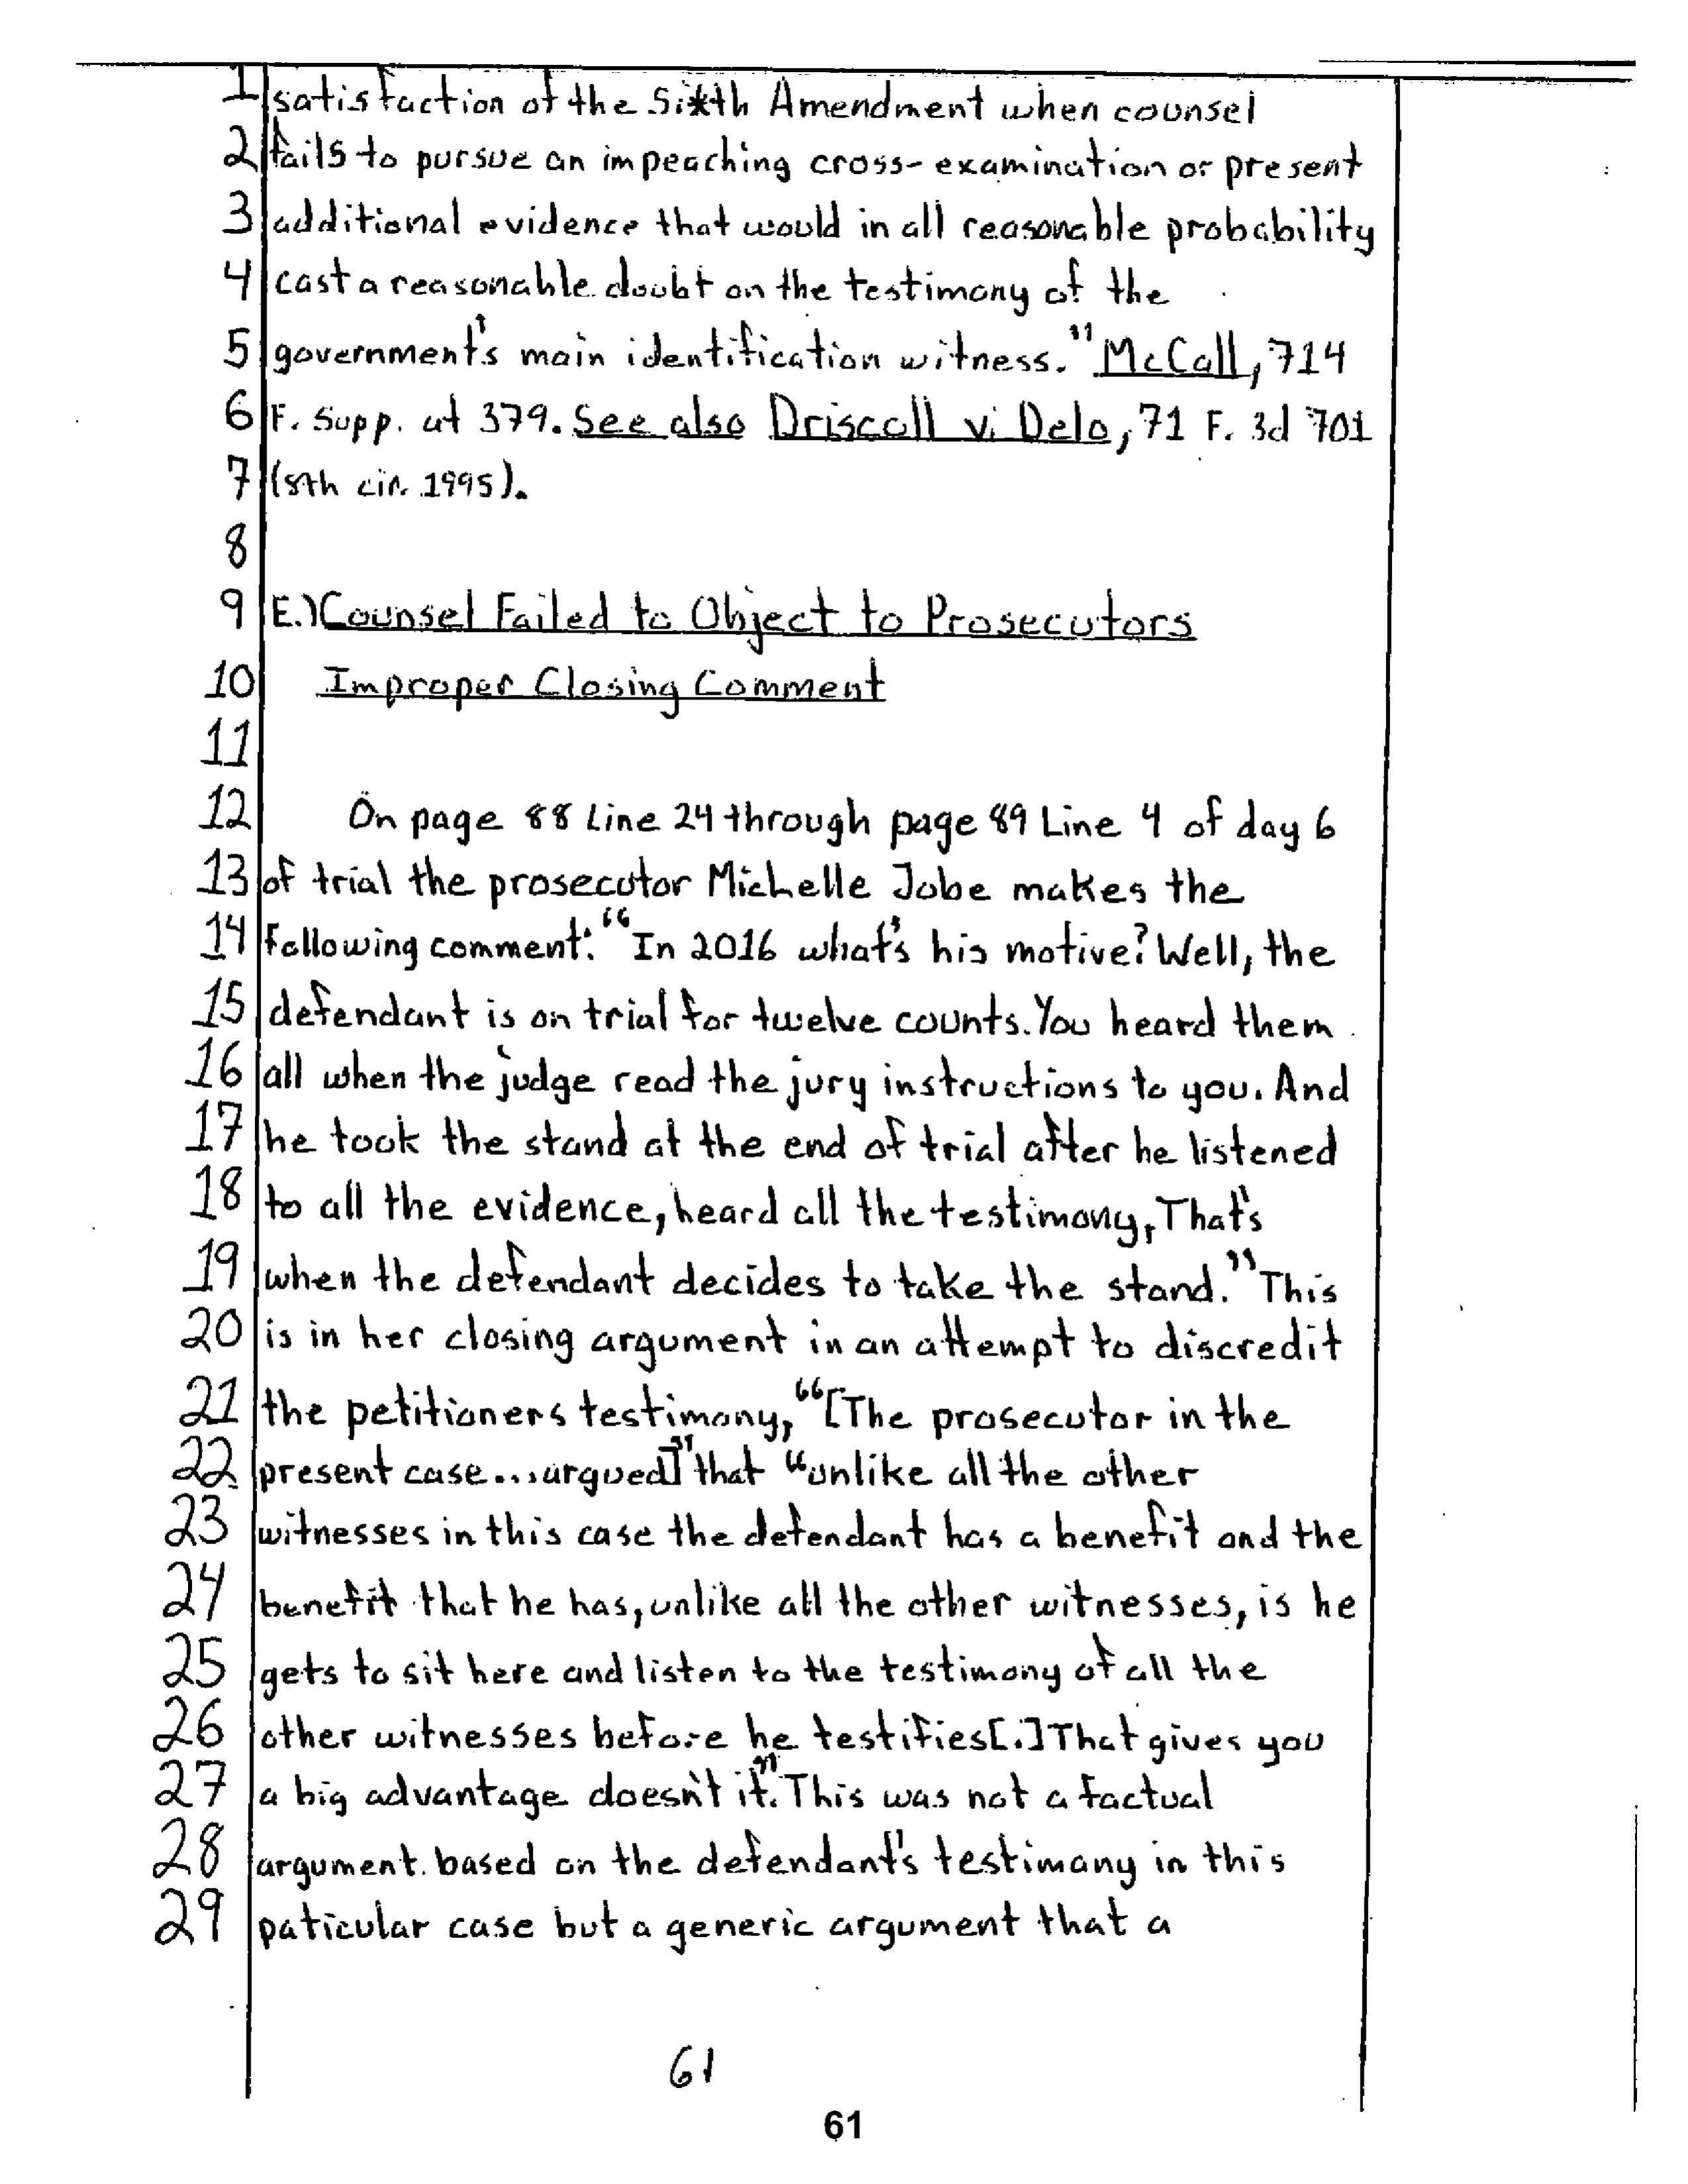 1 satisfaction of the Sixth Amendment when counsel
2 fails to pursue an impeaching cross-examination or present
3 additional evidence that would in all reasonable probability
4 cast a reasonable doubt on the testimony of the
5 government's main identification witness." McCall, 714
6 F. Supp. at 379. See also Driscoll v. Delo, 71 F. 3d 701
7 (8th cir. 1995).
8
9 E.) Counsel Failed to Object to Prosecutors
10 Improper Closing Comment
11
12 On page 88 Line 24 through page 89 Line 4 of day 6
13 of trial the prosecutor Michelle Jobe makes the
14 following comment: "In 2016 what's his motive? Well, the
15 defendant is on trial for twelve counts. You heard them
16 all when the judge read the jury instructions to you. And
17 he took the stand at the end of trial after he listened
18 to all the evidence, heard all the testimony, That's
19 when the defendant decides to take the stand." This
20 is in her closing argument in an attempt to discredit
21 the petitioners testimony, "[The prosecutor in the
22 present case...argued]" that "unlike all the other
23 witnesses in this case the defendant has a benefit and the
24 benefit that he has, unlike all the other witnesses, is he
25 gets to sit here and listen to the testimony of all the
26 other witnesses before he testifies[.] That gives you
27 a big advantage doesn't it." This was not a factual
28 argument based on the defendant's testimony in this
29 paticular case but a generic argument that a
61
61